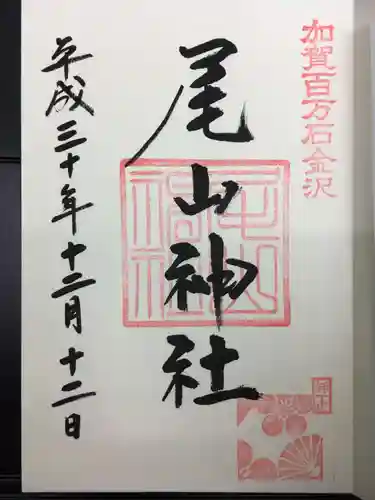 加賀百万石金沢
尾山神社
平成三十年十二月十二日